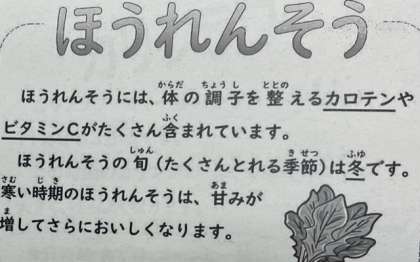 ほうれんそう
ほうれんそうには、体の調子を整えるカロテンや
ビタミンCがたくさん含まれています。
ほうれんそうの旬（たくさんとれる季節）は冬です。
寒い時期のほうれんそうは、甘みが
増してさらにおいしくなります。